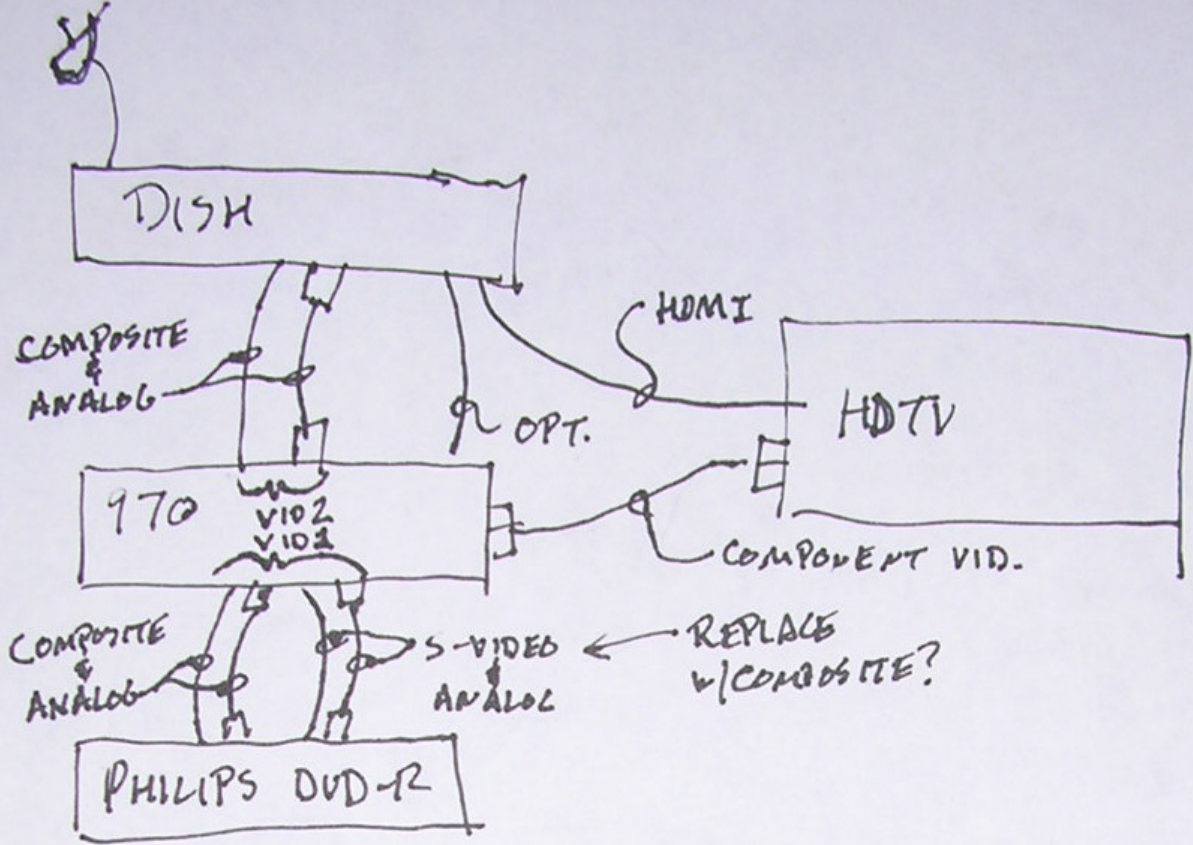 DISH
COMPOSITE
&
ANALOG
HDMI
OPT.
HDTV
970
VID2
VID1
COMPONENT VID.
COMPOSITE
&
ANALOG
S-VIDEO
&
ANALOG
REPLACE
W/COMPOSITE?
PHILIPS DVD-R